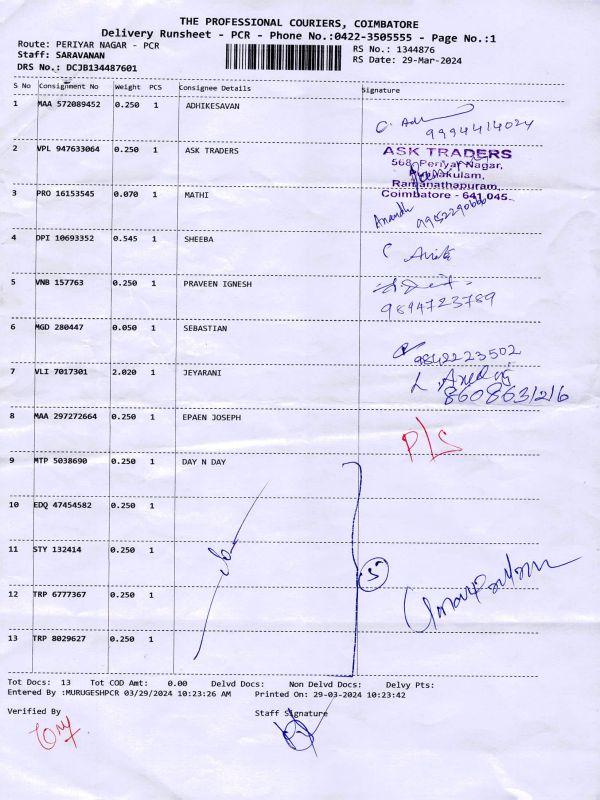 THE PROFESSIONAL COURIERS, COIMBATORE
Delivery Runsheet - PCR - Phone No.:0422-3505555 - Page No.:1
Route: PERIYAR NAGAR - PCR
RS No.: 1344876
Staff: SARAVANAN
RS Date: 29-Mar-2024
DRS No.: DCJB134487601
S No Consignment No Weight PCS Consignee Details Signature
1 MAA 572089452 0.250 1 ADHIKESAVAN
9994414024
2 VPL 947633064 0.250 1 ASK TRADERS
ASK TRADERS
568, Periyar Nagar,
Ramanathapuram,
Coimbatore - 641 045.
3 PRO 16153545 0.070 1 MATHI
Anandh
4 DPI 10693352 0.545 1 SHEEBA
5 VNB 157763 0.250 1 PRAVEEN IGNESH
9894723789
6 MGD 280447 0.050 1 SEBASTIAN
9842223502
7 VLI 7017301 2.020 1 JEYARANI
8608631216
8 MAA 297272664 0.250 1 EPAEN JOSEPH
P/S
9 MTP 5038690 0.250 1 DAY N DAY
10 EDQ 47454582 0.250 1
11 STY 132414 0.250 1
5
12 TRP 6777367 0.250 1
13 TRP 8029627 0.250 1
Tot Docs: 13 Tot COD Amt: 0.00 Delvd Docs: Non Delvd Docs: Delvy Pts:
Entered By :MURUGESHPCR 03/29/2024 10:23:26 AM Printed On: 29-03-2024 10:23:42
Verified By Staff Signature